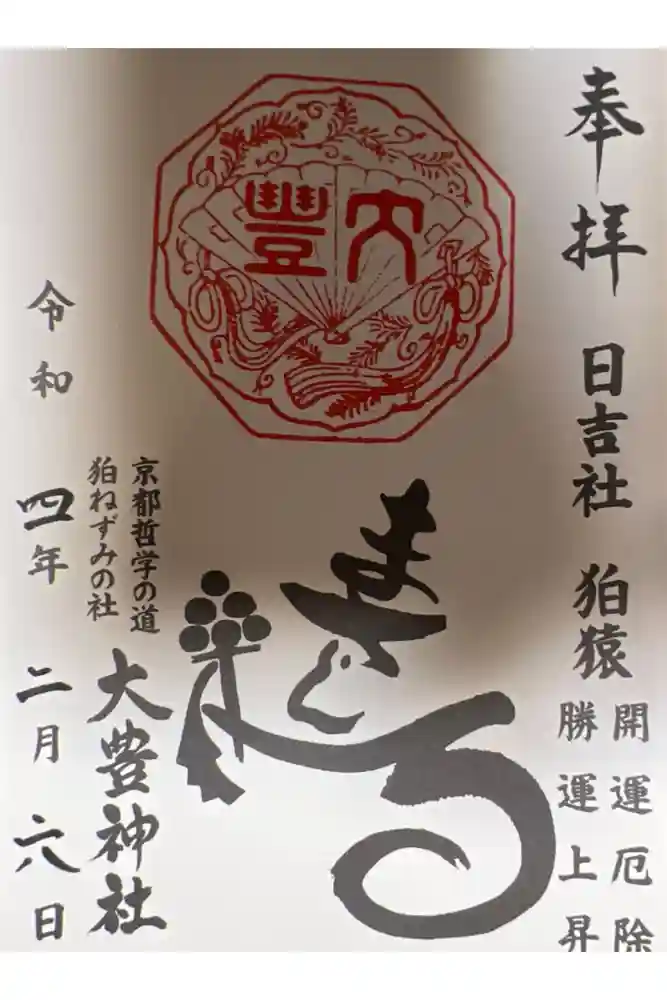 奉拝 日吉社 狛猿
開運厄除
勝運上昇
大豊
まさる
京都哲学の道
狛ねずみの社
大豊神社
令和四年二月六日